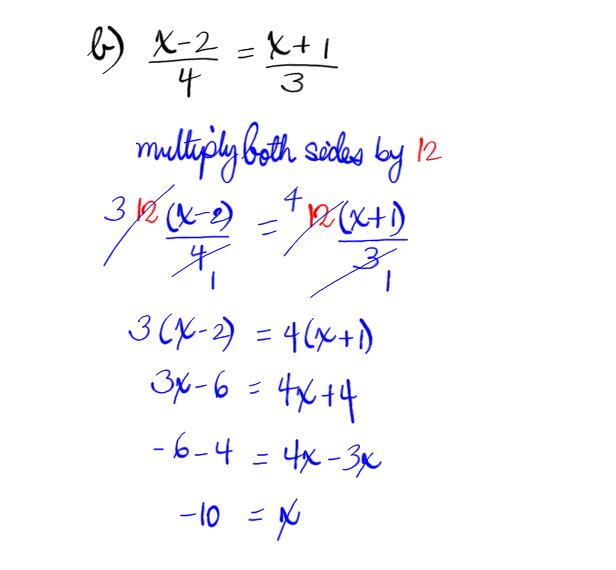 b) x-2/4 = x+1/3
multiply both sides by 12
3 12(x-2)/4 1 = 4 12(x+1)/3 1
3(x-2) = 4(x+1)
3x-6 = 4x+4
-6-4 = 4x-3x
-10 = x